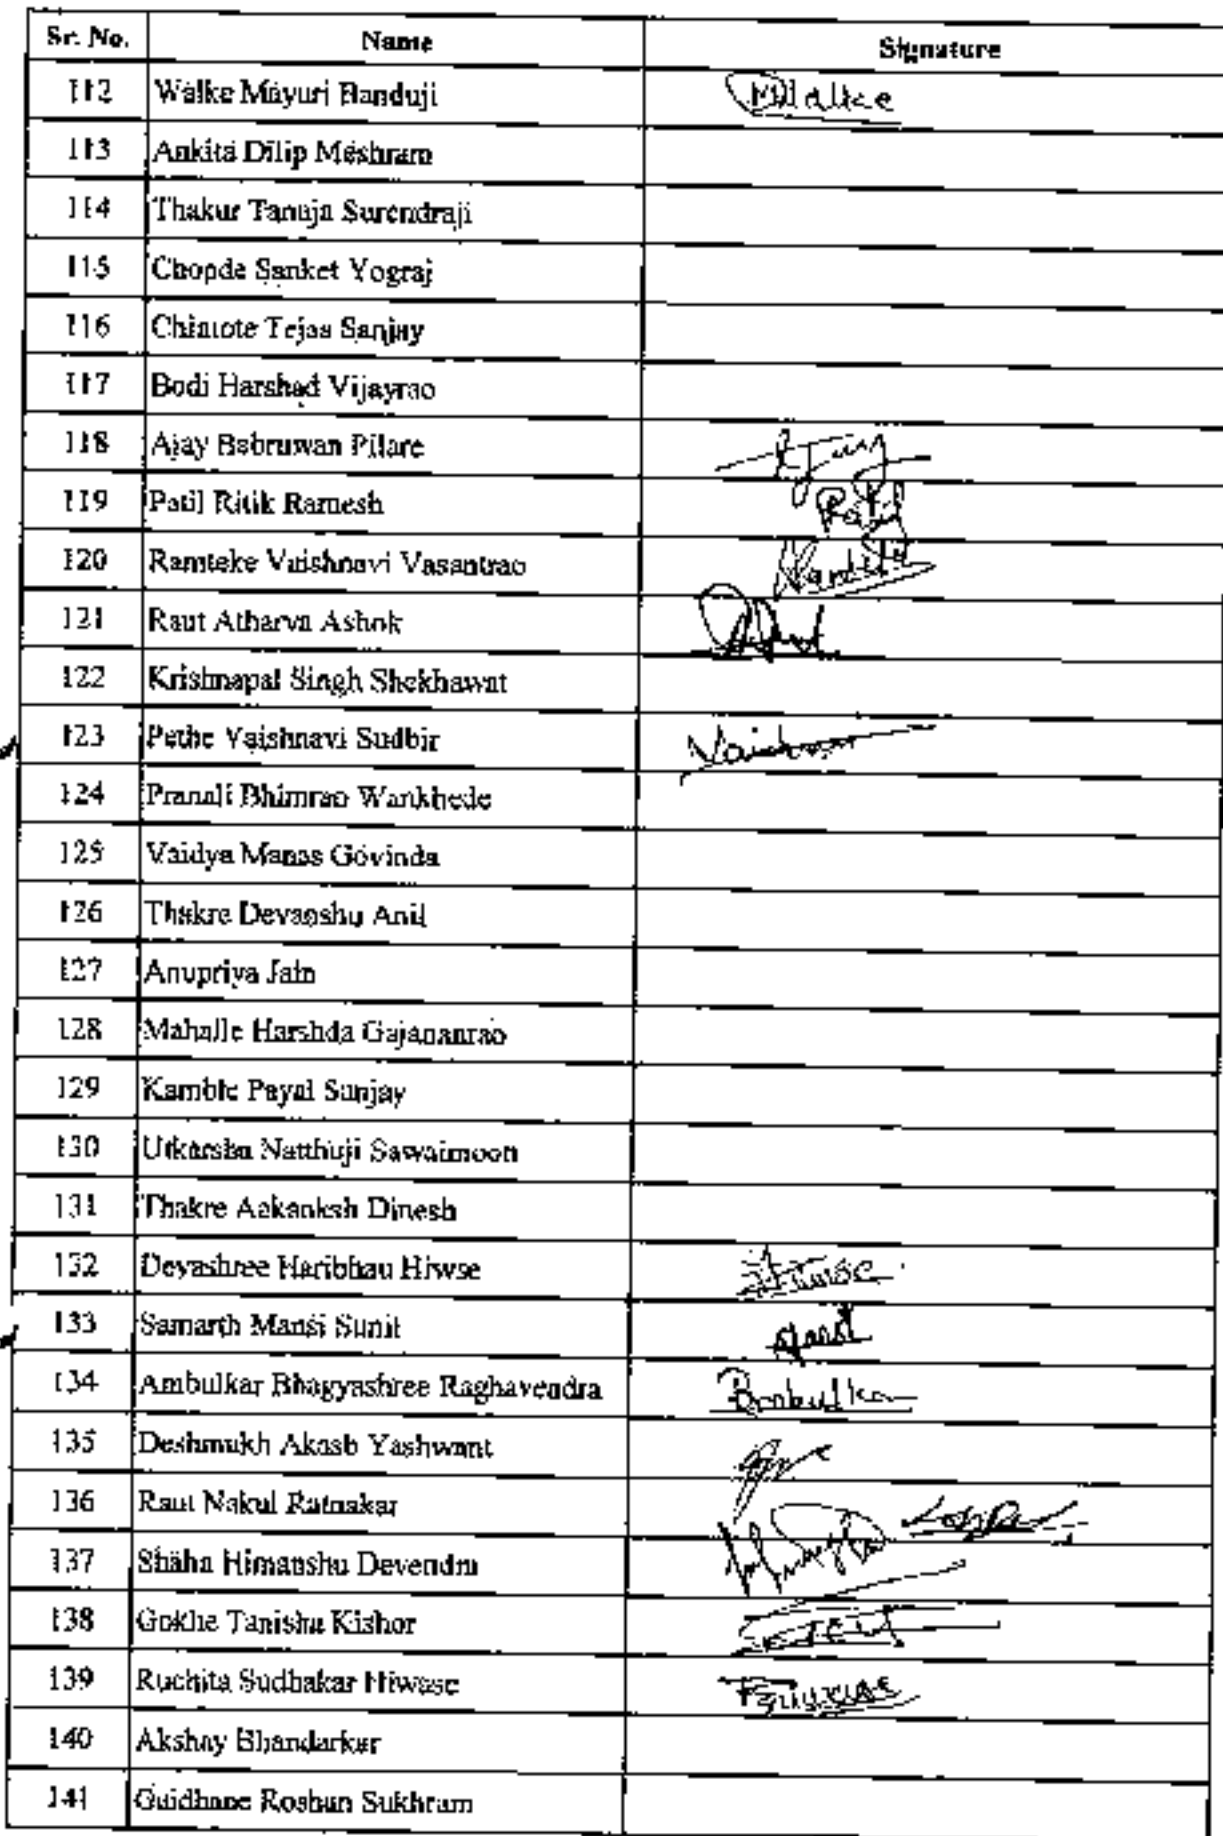 Sr. No. Name Signature
112 Walke Mayuri Banduji
113 Ankita Dilip Meshram
114 Thakur Tanuja Surendraji
115 Chopde Sanket Yograj
116 Chimote Tejas Sanjay
117 Bodi Harshad Vijayrao
118 Ajay Babruwan Pilare
119 Patil Ritik Ramesh Patil
120 Ramteke Vaishnavi Vasantrao
121 Raut Atharva Ashok
122 Krishnapal Singh Shekhawat
123 Pethe Vaishnavi Sudhir
124 Pranali Bhimrao Wankhede
125 Vaidya Manas Govinda
126 Thakre Devanshu Anil
127 Anupriya Jain
128 Mahalle Harshda Gajananrao
129 Kamble Payal Sanjay
130 Utkarsha Natthuji Sawaimoon
131 Thakre Aakanksh Dinesh
132 Devashree Haribhau Hiwse
133 Samarth Mansi Sunil
134 Ambulkar Bhagyashree Raghavendra
135 Deshmukh Akash Yashwant
136 Raut Nakul Ratnakar
137 Shaha Himanshu Devendra
138 Gokhe Tanisha Kishor
139 Ruchita Sudhakar Hiwase
140 Akshay Bhandarkar
141 Gaidhane Roshan Sukhram